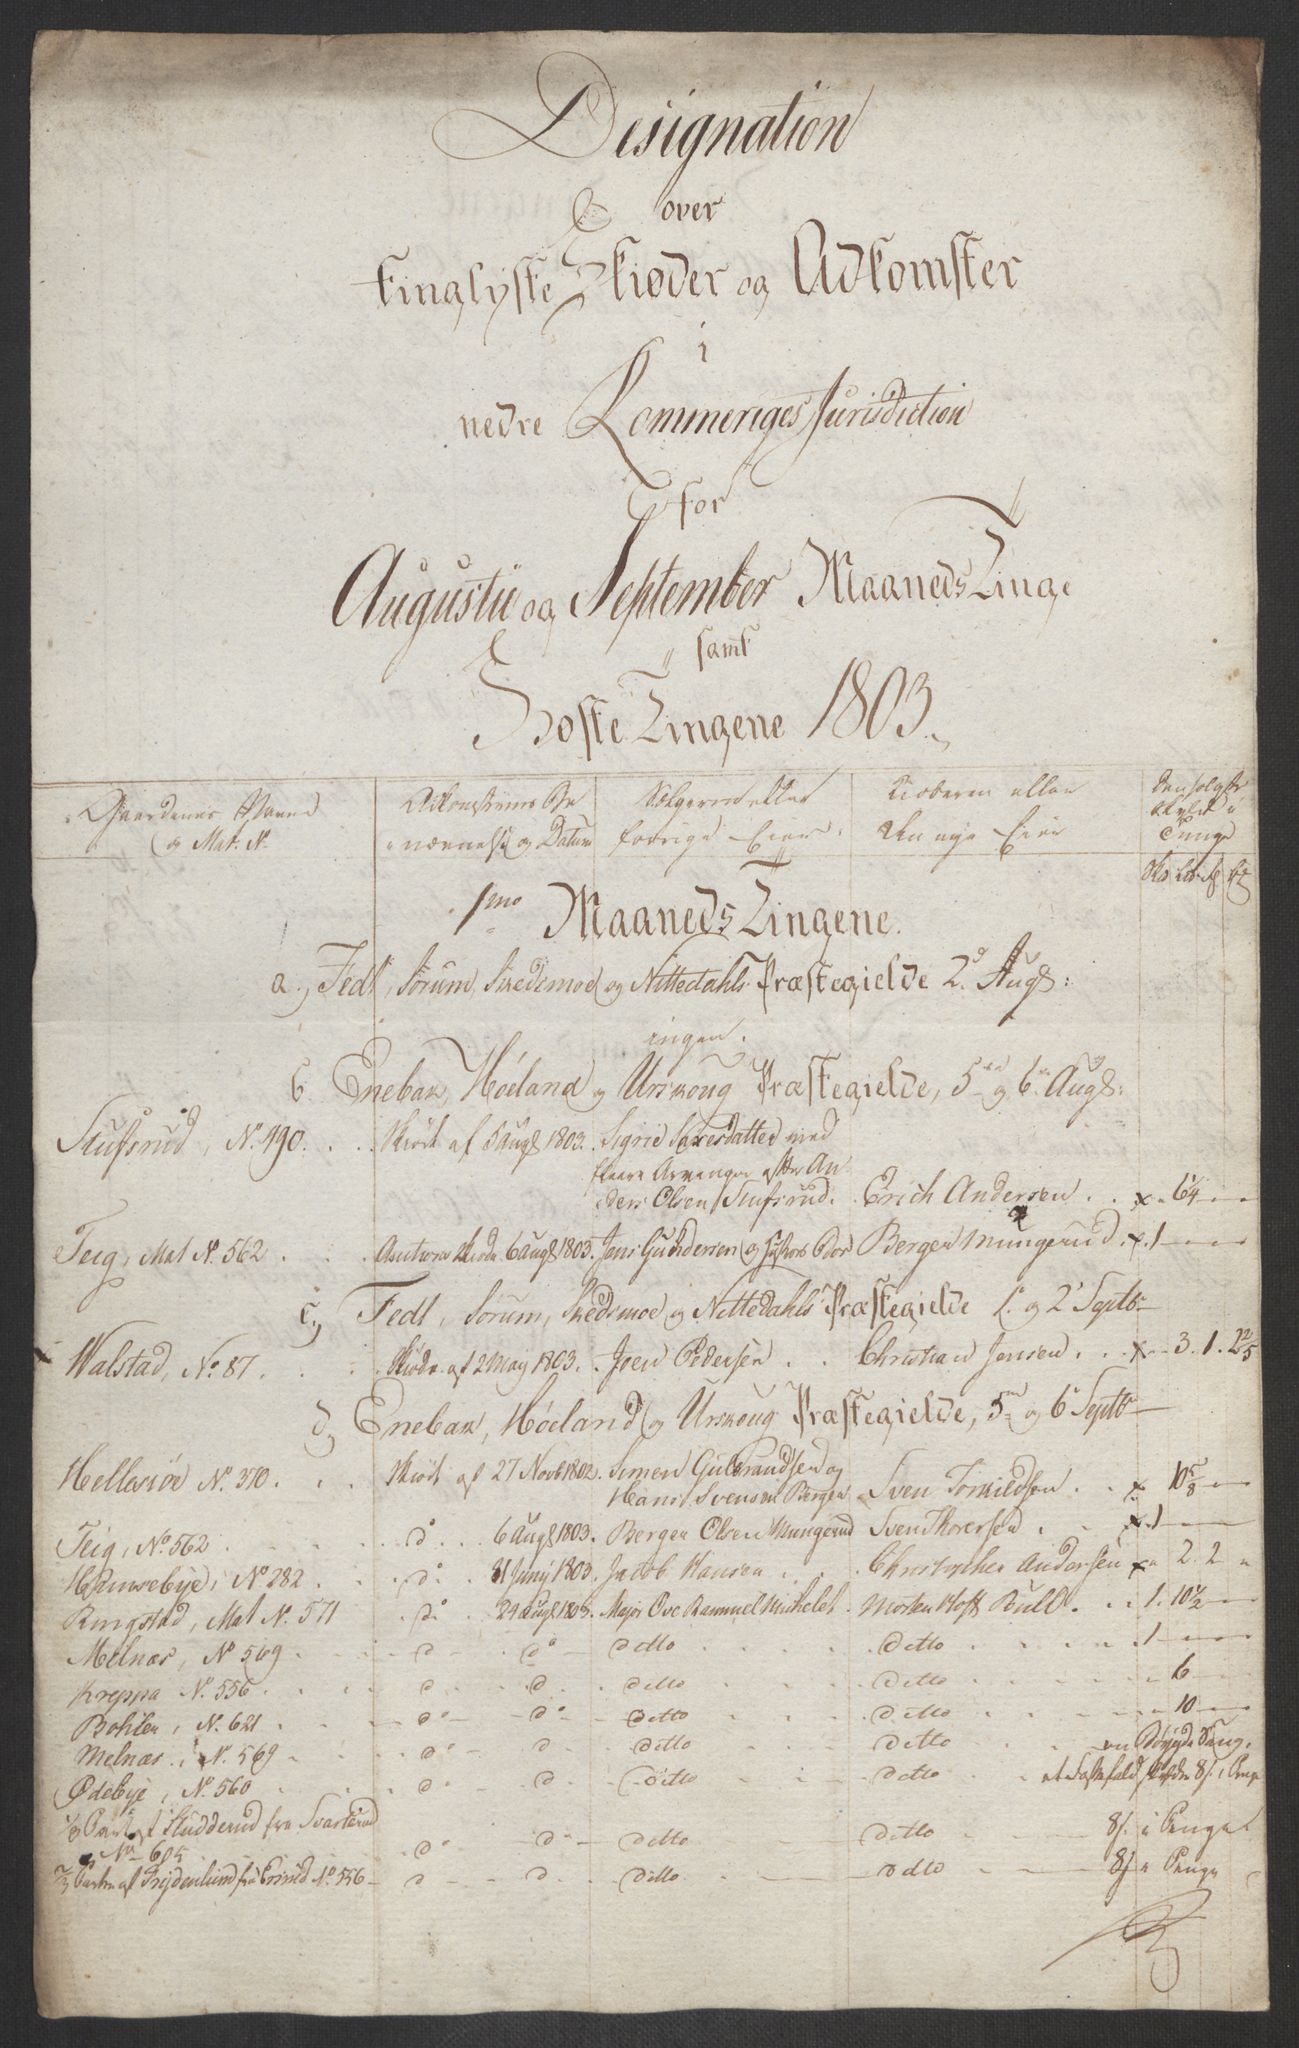 Designation
over
tinglyste Skiøder og Adkomster
i
nedre Rommeriges Jurisdiction
for
Augustii og September Maaneds Tinge
samt
Høste Tingene 1803.
Gaardenes Navne | Adkomstens Be | Sælgeren eller | Kiøberen eller | Den solgte
og Mat. No. | nævnelse og Datum | forrige Eier | den nye Eier | Skyld i
Tunge
1mo Maaneds Tingene.
a., Fedt, Sørum, Skedsmoe og Nittedahls Præstegielde 2d Augt:
ingen.
b. Enebak, Høeland og Urskoug Præstegielde, 5te og 6te Augt:
Stufsrud, No. 490. . . . Skiøde af 5 Augt 1803. Sigrid Larsdatter med
fleere Arvinger efter An-
ders Olsen Stufsrud. Erich Andersen . . x . 6 1/4
Teig, Mat No. 562 . . . 6 Augt 1803. Jens Gundersen og Bergen Mungerud . x . 1
c., Fedt, Sørum, Skedsmoe og Nittedahls Præstegielde 1. og 2. Septb
Walstad, No. 87. . . . Skiøde af 2 May 1803. Joen Pedersen . . Christian Jensen . . x . 3. 1. 2 2/5
d., Enebak, Høeland og Urskoug Præstegielde, 5te og 6t Septb
Hellesiøe No. 370 . . . Skiøde af 27 Novb 1802. Simen Gulbrandsen og
Hans Svensen Bergen Sven Torkildsen . . x 10 5/8
Teig, No. 562 . . . do . . 6 Augt 1803. Bergen Olsen Mungerud Sven Thoresen . . x . 1
No. 282 . . . do . . Juny 1803. Jacob Hansen . . Christopher Andersen x 2. 2
Ringstad, Mat No. 571 . . do . . 24 Augt 1803. Major Ove Rammel Michelet . Morten Hoft Bull . . 1. 10 1/2
Melnæs, No 569 . . . do . . do . . ditto . . . ditto . . . 1
Kreppa No. 556 . . . do . . do . . ditto . . . ditto . . . 6
Bohler, No. 621 . . . do . . do . . ditto . . . ditto . . . 10
Melnæs, No. 569 . . . do . . do . . ditto . . . ditto . . . en
Ødebye, No. 560 . . . do . . do . . ditto . . . ditto . . . et 8 s. i Penge
1/8 Part af Studderud fra Svarterud
No 605 . . do . . do . . ditto . . ditto . . 8 s. i Penge
2/3 Parten af No. 556 . . do . . do . . ditto . . ditto . . 8 s. i Penge